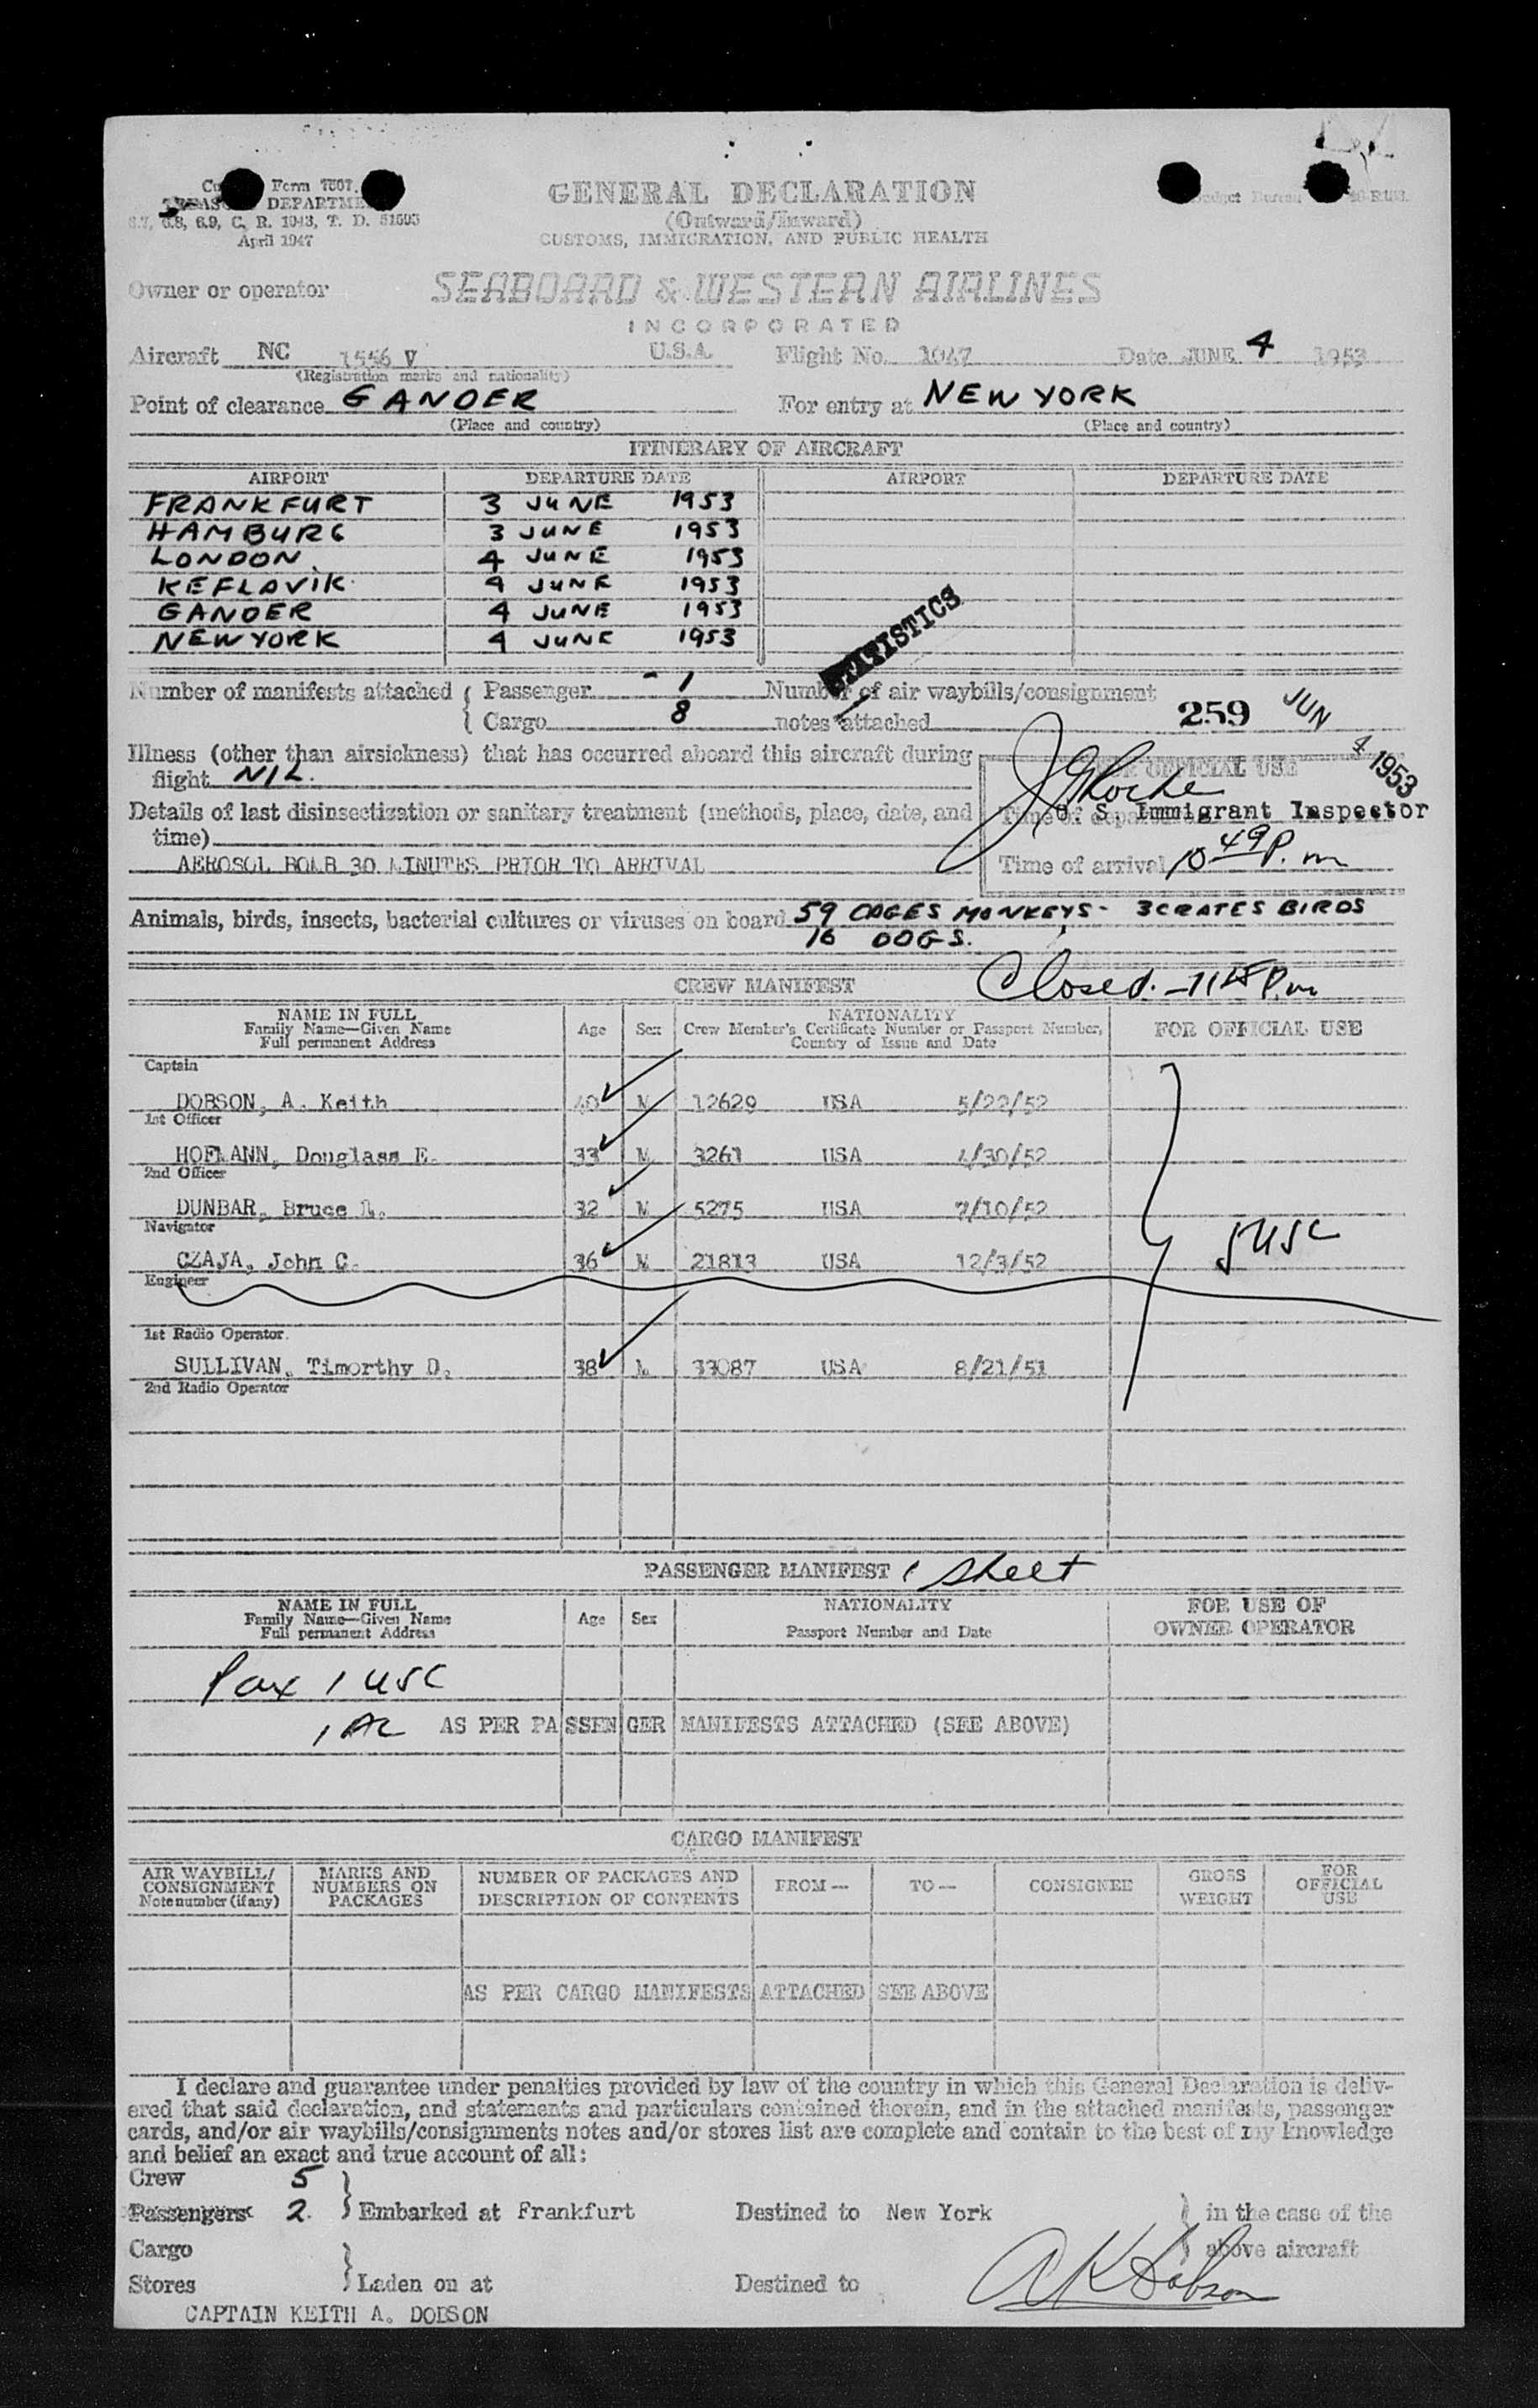 Form 7507.
TREASURY DEPARTMENT
6.7, 6.8, 6.9, C. R. 1943, T. D. 51503
April 1947
GENERAL DECLARATION
(Outward/Inward)
CUSTOMS, IMMIGRATION, AND PUBLIC HEALTH
Budget Bureau
Owner or operator SEABOARD & WESTERN AIRLINES
INCORPORATED
Aircraft NC 1556 V U.S.A. Flight No. 1047 Date JUNE 4 1953
(Registration marks and nationality)
Point of clearance GANDER For entry at NEW YORK
(Place and country) (Place and country)
ITINERARY OF AIRCRAFT
AIRPORT DEPARTURE DATE AIRPORT DEPARTURE DATE
FRANKFURT 3 JUNE 1953
HAMBURG 3 JUNE 1953
LONDON 4 JUNE 1953
KEFLAVIK 4 JUNE 1953
GANDER 4 JUNE 1953
NEW YORK 4 JUNE 1953
STATISTICS
Number of manifests attached { Passenger - 1 Number of air waybills/consignment
Cargo 8 notes attached 259
JUN 4 1953
Illness (other than airsickness) that has occurred aboard this aircraft during
flight NIL.
FOR OFFICIAL USE
Details of last disinsectization or sanitary treatment (methods, place, date, and
time)
AEROSOL BOMB 30 MINUTES PRIOR TO ARRIVAL
JGRoche
U. S. Immigrant Inspector
Time of departure
Time of arrival 10 49 P. m
Animals, birds, insects, bacterial cultures or viruses on board 59 CAGES MONKEYS - 3 CRATES BIRDS
16 DOGS.
CREW MANIFEST Closed. - 11 15 P.m
NAME IN FULL
Family Name—Given Name
Full permanent Address
Age Sex
NATIONALITY
Crew Member's Certificate Number or Passport Number,
Country of Issue and Date
FOR OFFICIAL USE
Captain
DOBSON, A. Keith 40 M 12629 USA 5/22/52
1st Officer
HOFMANN, Douglass E. 33 M 3261 USA 4/30/52
2nd Officer
DUNBAR, Bruce L. 32 M 5275 USA 7/10/52
Navigator
CZAJA, John C. 36 M 21813 USA 12/3/52
5 USC
Engineer
1st Radio Operator
SULLIVAN, Timorthy D. 38 M 33087 USA 8/21/51
2nd Radio Operator
PASSENGER MANIFEST 1 Sheet
NAME IN FULL
Family Name—Given Name
Full permanent Address
Age Sex
NATIONALITY
Passport Number and Date
FOR USE OF
OWNER OPERATOR
Pax 1 USC
1 AC AS PER PASSENGER MANIFESTS ATTACHED (SEE ABOVE)
CARGO MANIFEST
AIR WAYBILL/
CONSIGNMENT
Note number (if any)
MARKS AND
NUMBERS ON
PACKAGES
NUMBER OF PACKAGES AND
DESCRIPTION OF CONTENTS
FROM— TO— CONSIGNEE
GROSS
WEIGHT
FOR
OFFICIAL
USE
AS PER CARGO MANIFESTS ATTACHED SEE ABOVE
I declare and guarantee under penalties provided by law of the country in which this General Declaration is deliv-
ered that said declaration, and statements and particulars contained therein, and in the attached manifests, passenger
cards, and/or air waybills/consignments notes and/or stores list are complete and contain to the best of my knowledge
and belief an exact and true account of all:
Crew 5
Passengers 2. } Embarked at Frankfurt Destined to New York } in the case of the
Cargo above aircraft
Stores } Laden on at Destined to
AKDobson
CAPTAIN KEITH A. DOBSON